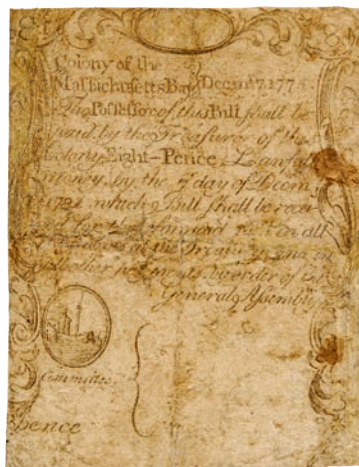 Colony of the
Massachusetts Bay Decemr. 7. 177
The Possessor of this Bill shall be
paid by the Treasurer of the
Colony Eight-Pence Lawful
money by the 7 day of Decem
which Bill shall be
for the in all
at the Treasury and in
other by order of
General Assembly
Committee
pence